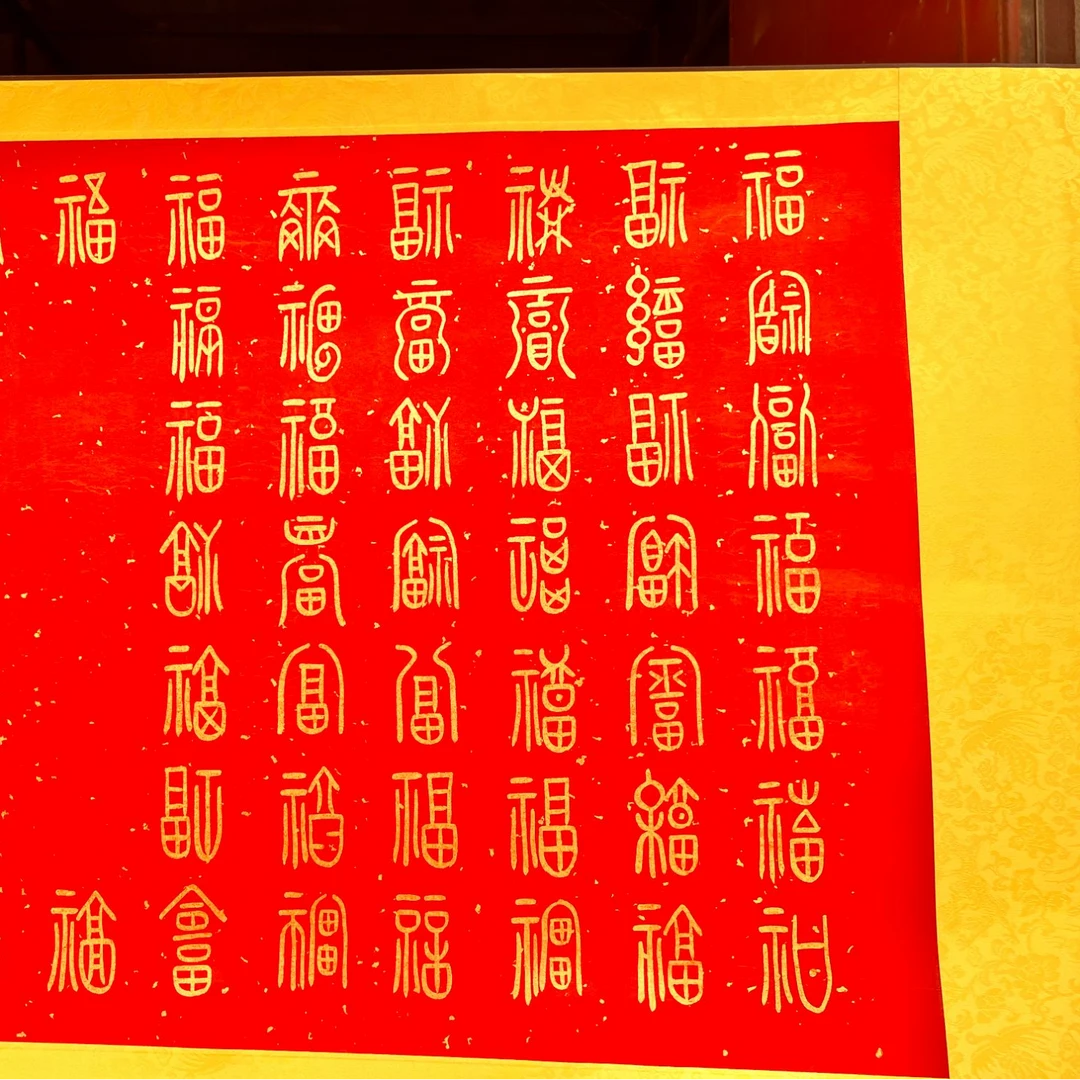 福福福福福福福
福福福福福福福
福福福福福福福
福福福福福福福
福福福福福福福
福福福福福福福
福
福